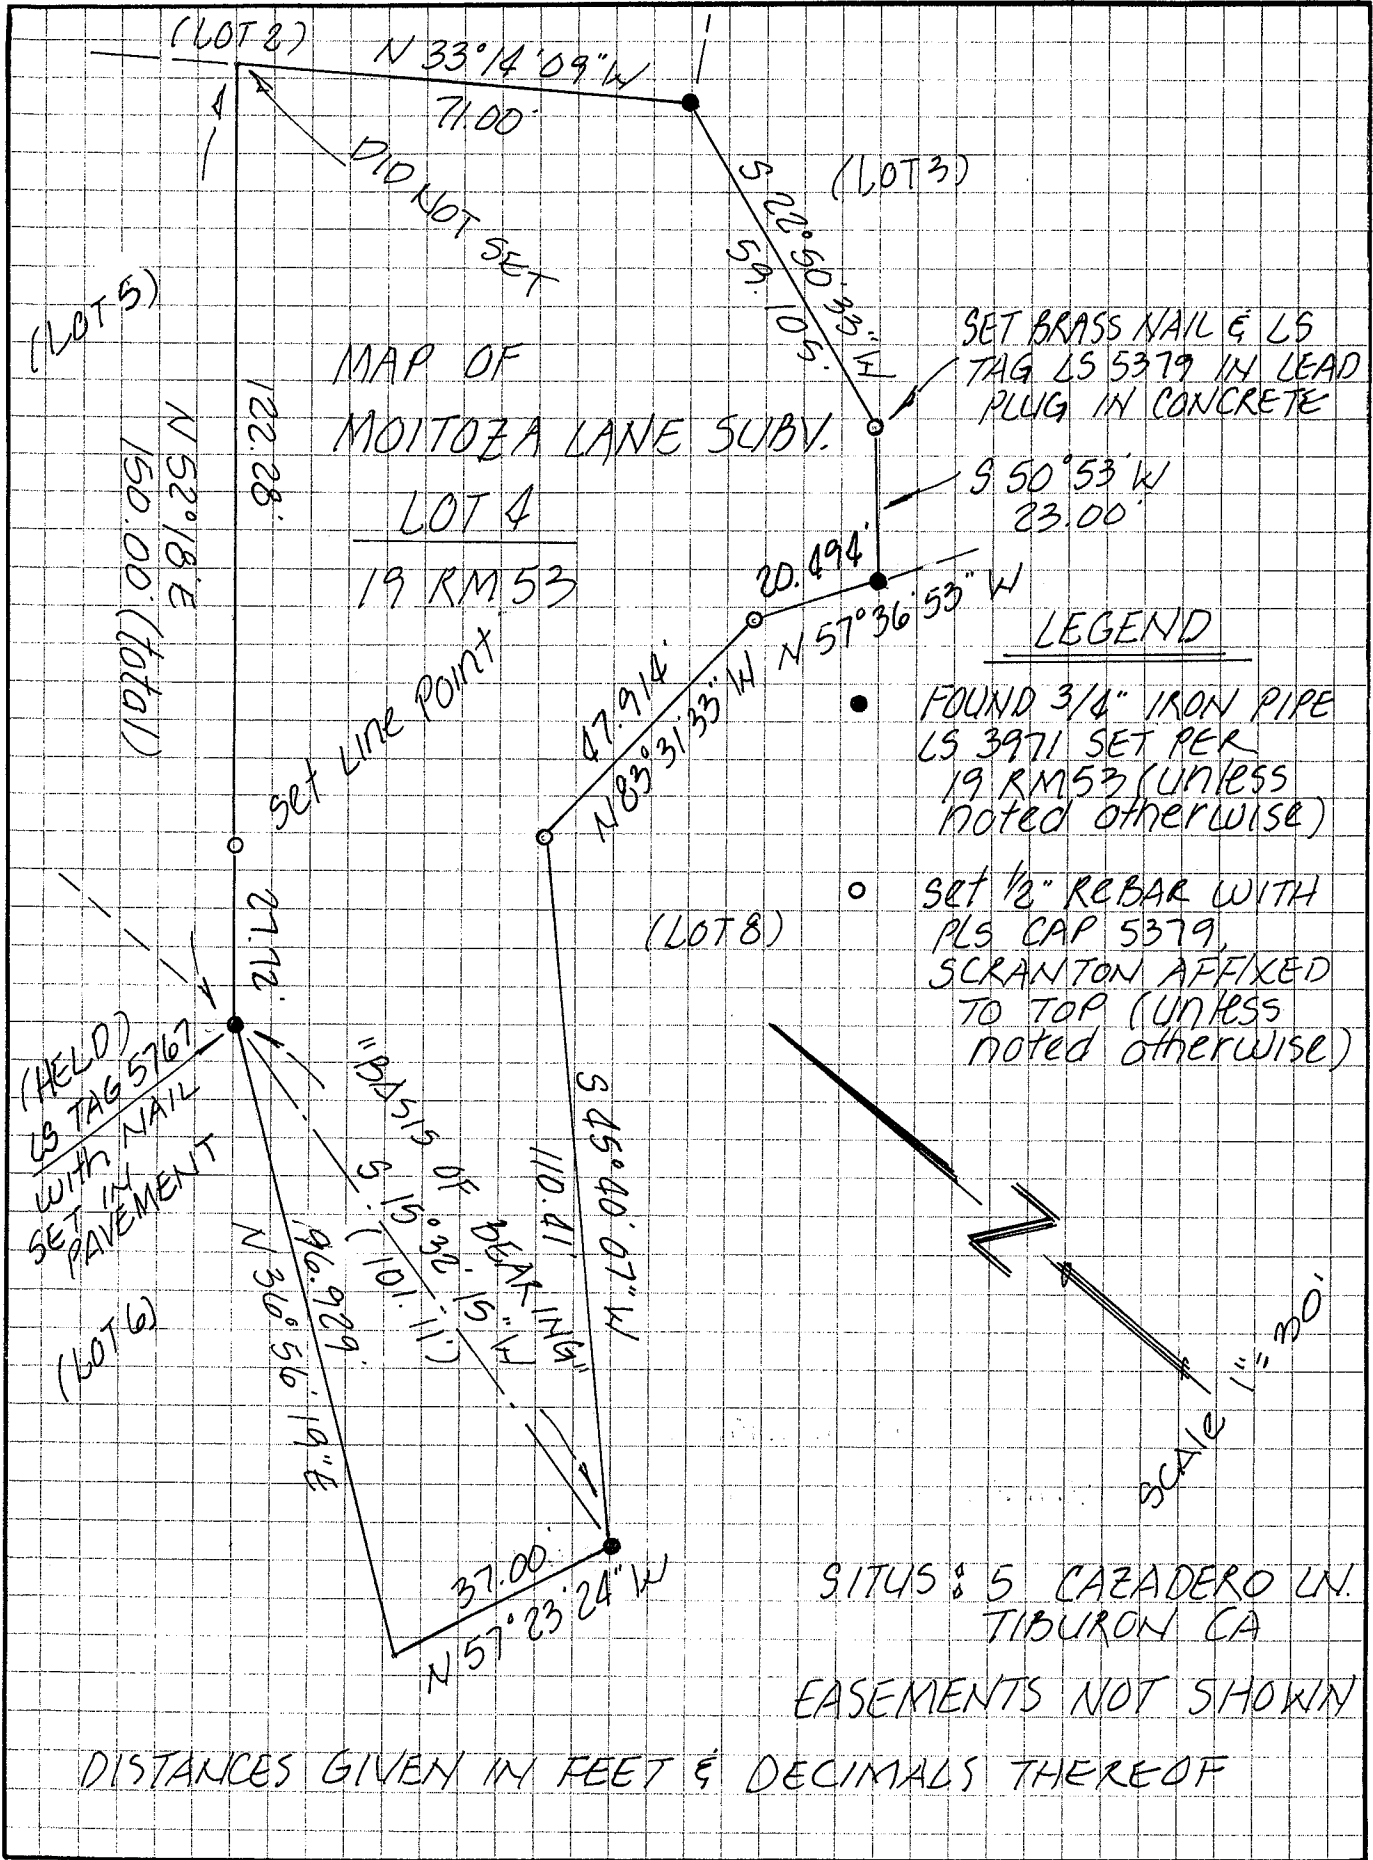 (LOT 2)
N 33°14'09" W
71.00'
DID NOT SET
(LOT 3)
S 22°50'33" W
59.105'
(LOT 5)
SET BRASS NAIL & LS
TAG LS 5379 IN LEAD
PLUG IN CONCRETE
MAP OF
MOITOZA LANE SUBV.
LOT 4
19 RM 53
122.28'
N 52°18' E
150.00' (total)
S 50°53' W
23.00'
20.494'
N 57°36'53" W
47.914'
N 83°31'33" W
Set Line Point
27.72'
LEGEND
● FOUND 3/4" IRON PIPE
LS 3971 SET PER
19 RM 53 (unless
noted otherwise)
○ Set 1/2" REBAR WITH
PLS CAP 5379,
SCRANTON AFFIXED
TO TOP (unless
noted otherwise)
(LOT 8)
(HELD)
LS TAG 5767
with NAIL
SET IN
PAVEMENT
(LOT 6)
"BASIS OF BEARING"
S 15°32'15" W
(101.11')
S 45°40'07" W
110.41'
96.929'
N 36°56'19" E
37.00'
N 57°23'24" W
N
SCALE 1"=30'
SITUS: 5 CAZADERO LN.
TIBURON CA
EASEMENTS NOT SHOWN
DISTANCES GIVEN IN FEET & DECIMALS THEREOF